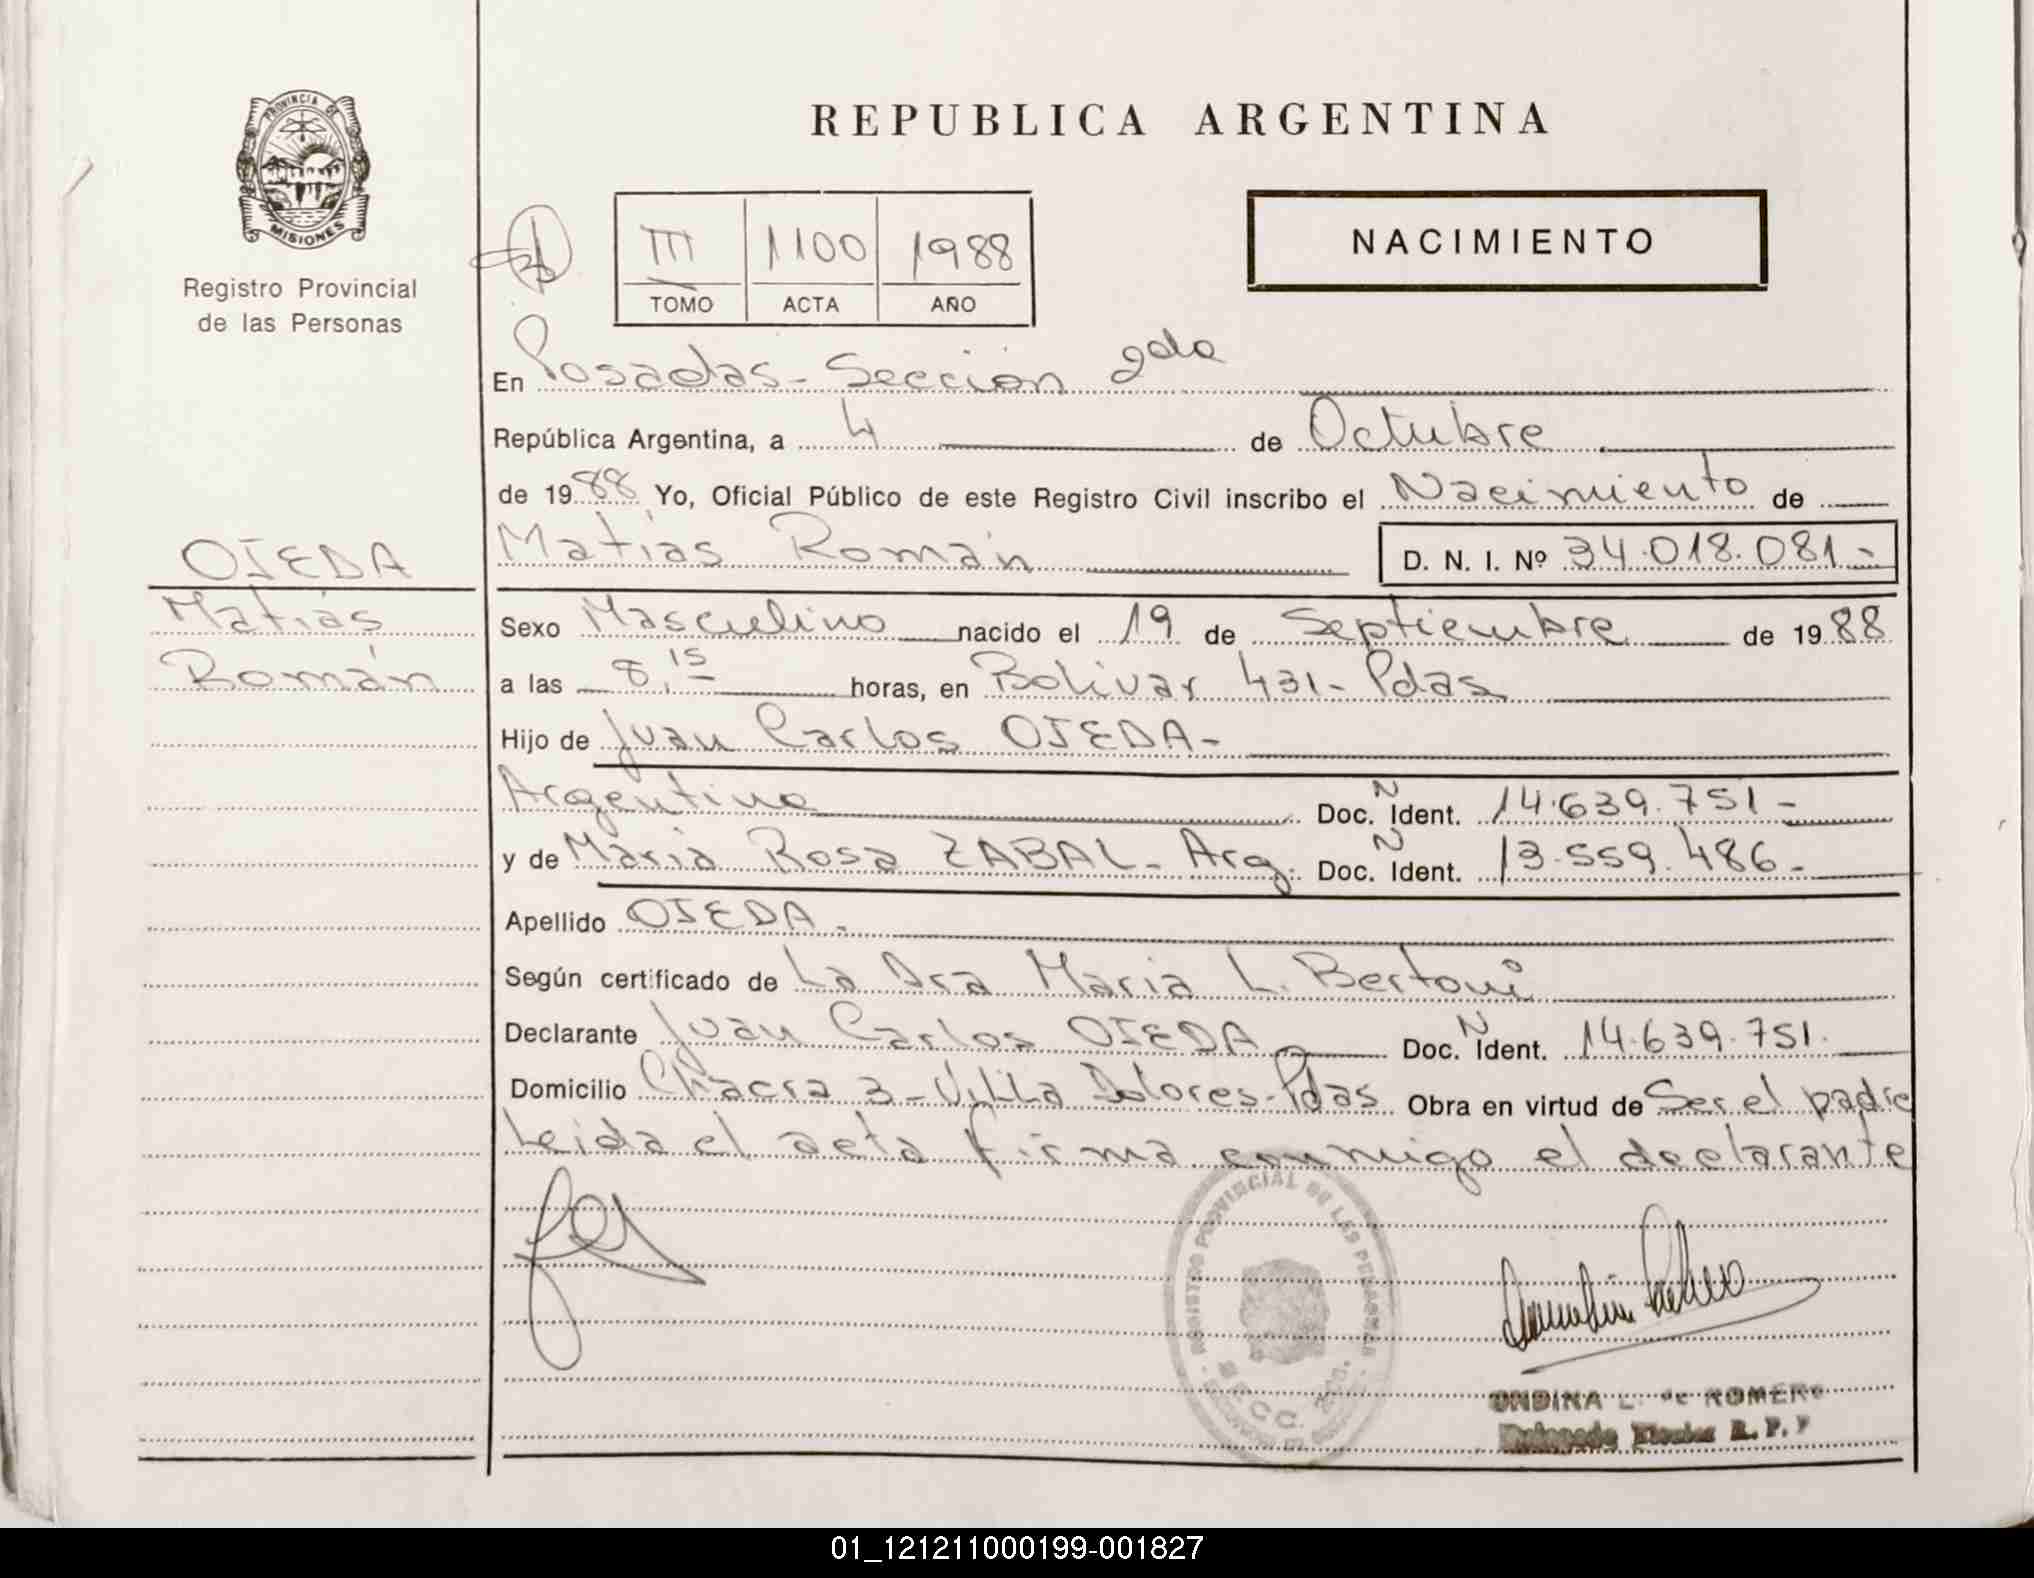 REPUBLICA ARGENTINA
PROVINCIA DE
MISIONES
Registro Provincial
de las Personas
III 1100 1988
TOMO ACTA AÑO
NACIMIENTO
En Posadas - Sección 2da
República Argentina, a 4 de Octubre
de 1988 Yo, Oficial Público de este Registro Civil inscribo el Nacimiento de
OJEDA
Matías Román D. N. I. Nº 34.018.081.-
Matías
Román
Sexo Masculino nacido el 19 de Septiembre de 1988
a las 8,15 horas, en Bolívar 431- Pdas
Hijo de Juan Carlos OJEDA-
Argentino Doc. N Ident. 14.639.751-
y de María Rosa ZABAL- Arg. Doc. N Ident. 13.559.486-
Apellido OJEDA.
Según certificado de La Dra Maria L. Bertoni
Declarante Juan Carlos OJEDA Doc. N Ident. 14.639.751.
Domicilio Chacra 3-Villa Dolores-Pdas Obra en virtud de Ser el padre
Leida el acta firma conmigo el declarante
REGISTRO PROVINCIAL DE LAS PERSONAS
SECC. 2da.
ONDINA L. de ROMERO
R. P. P
01_121211000199-001827